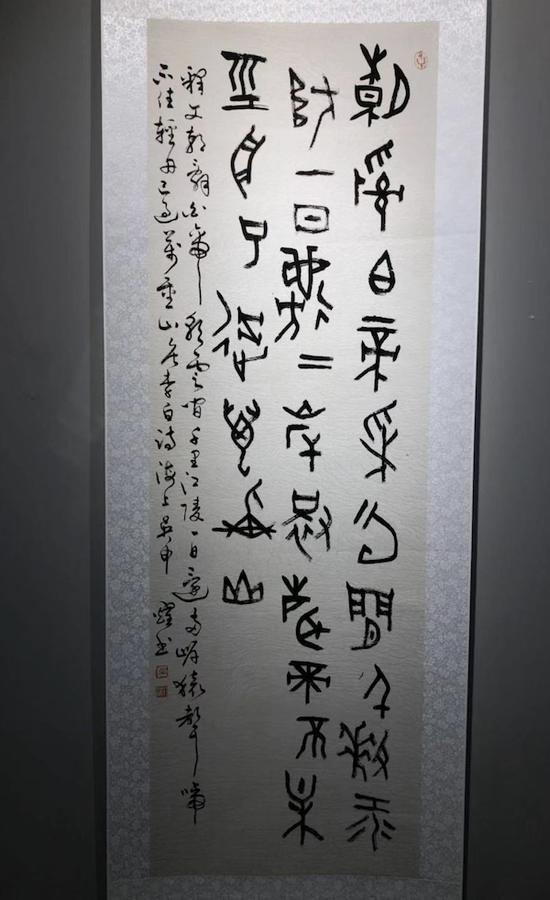 朝辭白帝采云間千里江
陵一日還二岸猿聲啼不住
巠舟已過萬重山
釋文朝辭白帝彩雲間千里江陵一日還兩岸猿聲啼
不住輕舟已過萬重山唐李白詩海上吳申耀書